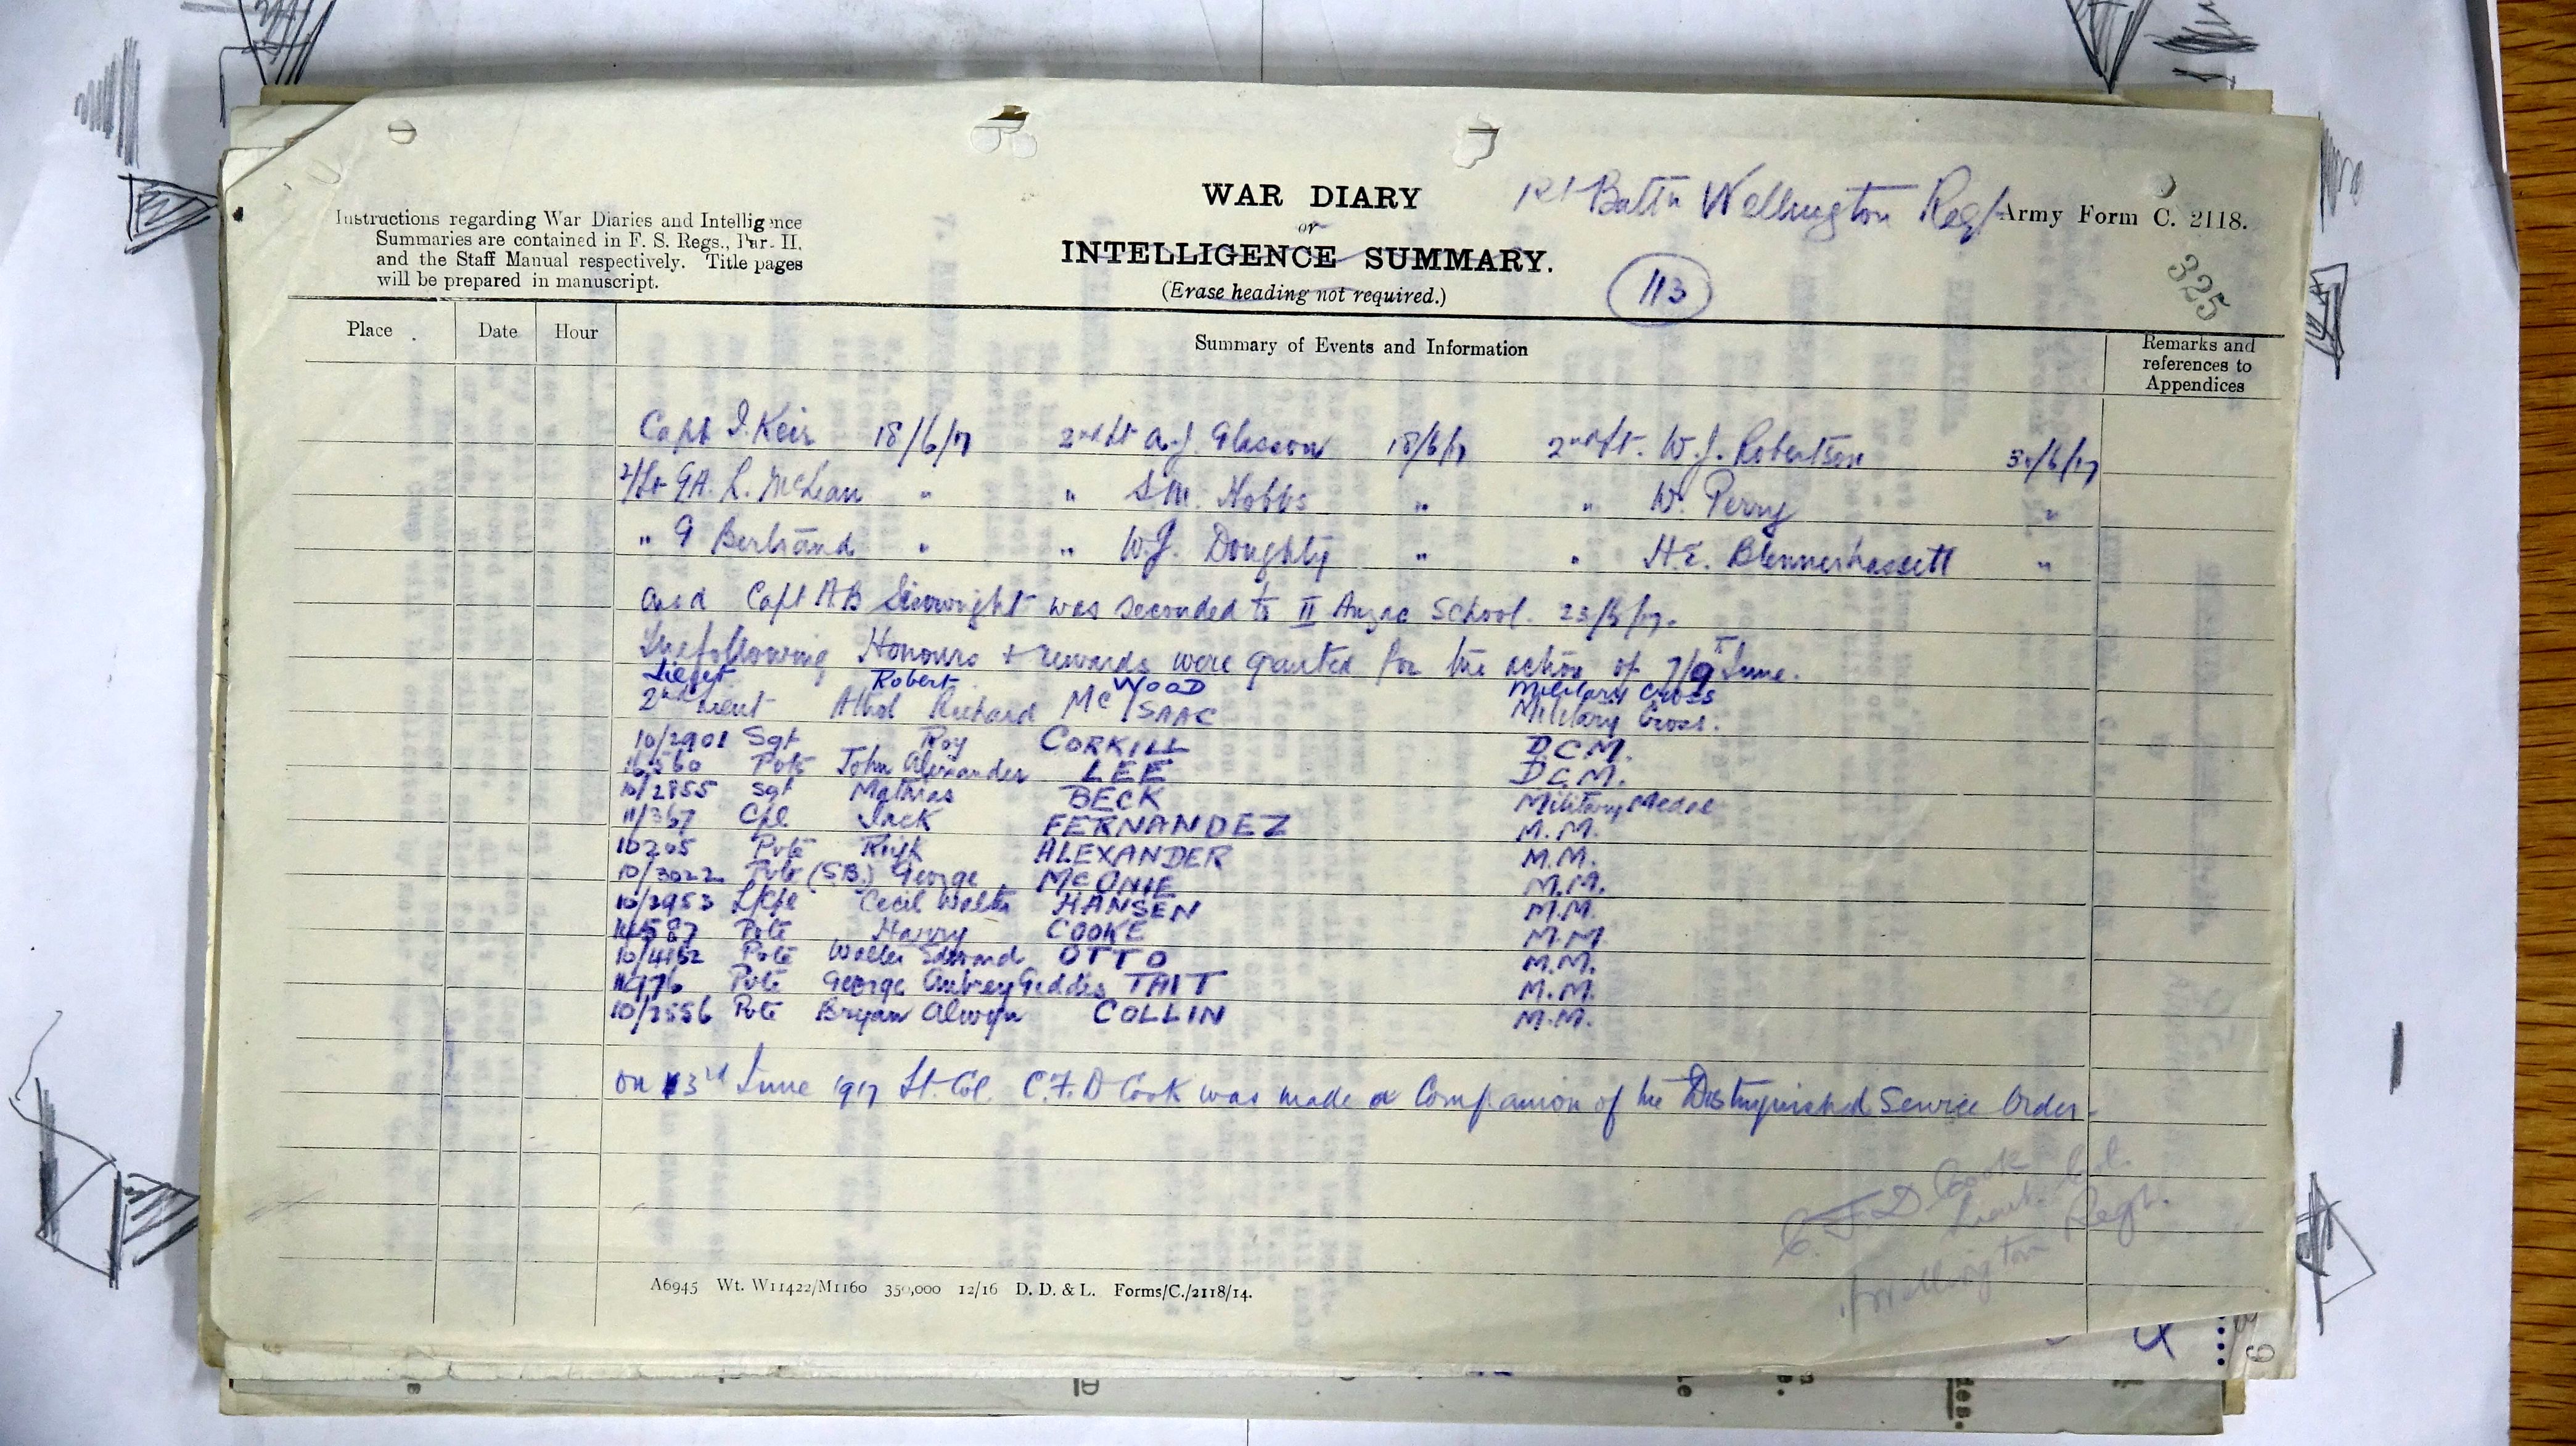 WAR DIARY
or
INTELLIGENCE SUMMARY.
(Erase heading not required.)
Instructions regarding War Diaries and Intelligence
Summaries are contained in F. S. Regs., Part II,
and the Staff Manual respectively. Title pages
will be prepared in manuscript.
1st Battn Wellington Regt
Army Form C. 2118.
113
325
Place Date Hour Summary of Events and Information Remarks and references to Appendices
Capt I. Keir 18/6/17 2nd Lt A.J. Glasson 18/6/17 2nd Lt. W.J. Robertson 30/6/17
2/Lt G.A. L. McLean " " S.M. Hobbs " " W. Perry "
" G Bertrand " " W.J. Doughty " " H.E. Blennerhassett "
and Capt AB was seconded to II Anzac School. 23/6/17.
The following Honours + rewards were granted for the action of 7/9th June.
Lieut Robert WOOD Military Cross
2nd Lieut Athol Richard McISAAC Military Cross.
10/2901 Sgt Roy CORKILL D.C.M.
Pvte John Alexander LEE D.C.M.
10/2855 Sgt Mathias BECK Military Medal
11/367 Cpl Jack FERNANDEZ M.M.
Pvte ALEXANDER M.M.
10/3022 Pvte (S.B.) George McONIE M.M.
10/3953 L/Cpl Cecil Walter HANSEN M.M.
Pvte Harry COOKE M.M.
10/4162 Pvte Walter Edward OTTO M.M.
Pvte George Aubrey Geddes TAIT M.M.
Pvte Bryan Alwyn COLLIN M.M.
On 3rd June 1917 Lt. Col. C.F.D Cook was made a Companion of the Distinguished Service Order.
C. F. D Cook
Lieut. Col.
Wellington Regt.
A6945 Wt. W11422/M1160 350,000 12/16 D. D. & L. Forms/C./2118/14.